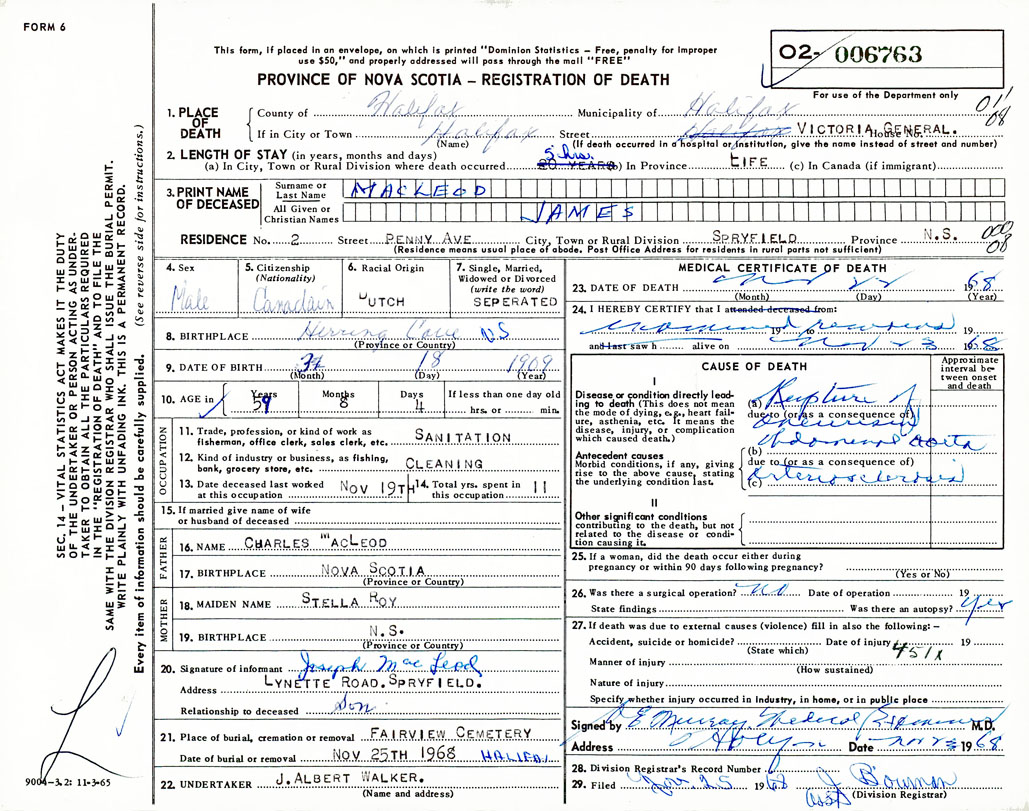 FORM 6
This form, if placed in an envelope, on which is printed "Dominion Statistics – Free, penalty for improper
use $50," and properly addressed will pass through the mail "FREE"
PROVINCE OF NOVA SCOTIA – REGISTRATION OF DEATH
02- 006763
For use of the Department only
011
08
1. PLACE OF DEATH
County of Halifax Municipality of Halifax
If in City or Town Halifax Street Halifax VICTORIA GENERAL. House No.
(Name) (If death occurred in a hospital or institution, give the name instead of street and number)
2. LENGTH OF STAY (in years, months and days)
(a) In City, Town or Rural Division where death occurred 20 YEARS 5 hrs. (b) In Province LIFE (c) In Canada (if immigrant)
3. PRINT NAME OF DECEASED
Surname or Last Name MACLEOD
All Given or Christian Names JAMES
RESIDENCE No. 2 Street PENNY AVE City, Town or Rural Division SPRYFIELD Province N.S. 000
08
(Residence means usual place of abode. Post Office Address for residents in rural parts not sufficient)
4. Sex
Male
5. Citizenship
(Nationality)
Canadain
6. Racial Origin
DUTCH
7. Single, Married,
Widowed or Divorced
(write the word)
SEPERATED
8. BIRTHPLACE Herring Cove N.S
(Province or Country)
9. DATE OF BIRTH 18 1909
(Month) (Day) (Year)
10. AGE in Years 59 Months 8 Days 4 If less than one day old
hrs. or min.
OCCUPATION
11. Trade, profession, or kind of work as
fisherman, office clerk, sales clerk, etc. SANITATION
12. Kind of industry or business, as fishing,
bank, grocery store, etc. CLEANING
13. Date deceased last worked
at this occupation NOV 19TH
14. Total yrs. spent in
this occupation 11
15. If married give name of wife
or husband of deceased
FATHER
16. NAME CHARLES MACLEOD
17. BIRTHPLACE NOVA SCOTIA
(Province or Country)
MOTHER
18. MAIDEN NAME STELLA ROY
19. BIRTHPLACE N.S.
(Province or Country)
20. Signature of informant Joseph Mac Leod
Address LYNETTE ROAD. SPRYFIELD.
Relationship to deceased Son
21. Place of burial, cremation or removal FAIRVIEW CEMETERY
Date of burial or removal NOV 25TH 1968
22. UNDERTAKER J. ALBERT WALKER.
(Name and address)
MEDICAL CERTIFICATE OF DEATH
23. DATE OF DEATH Nov 1968
(Month) (Day) (Year)
24. I HEREBY CERTIFY that I attended deceased from:
19 to 19
and last saw h alive on Nov 23 1968
CAUSE OF DEATH
Approximate
interval between
onset
and death
I
Disease or condition directly leading
to death (This does not mean
the mode of dying, e.g., heart failure,
asthenia, etc. It means the
disease, injury, or complication
which caused death.)
(a) Rupture of
due to (or as a consequence of)
aneurism
abdominal aorta
Antecedent causes
Morbid conditions, if any, giving
rise to the above cause, stating
the underlying condition last.
(b)
due to (or as a consequence of)
(c) Arteriosclerosis
II
Other significant conditions
contributing to the death, but not
related to the disease or condition
causing it.
25. If a woman, did the death occur either during
pregnancy or within 90 days following pregnancy?
(Yes or No)
26. Was there a surgical operation? No Date of operation 19
State findings Was there an autopsy? Yes
27. If death was due to external causes (violence) fill in also the following: –
Accident, suicide or homicide? Date of injury 19
(State which) 451X
Manner of injury
(How sustained)
Nature of injury
Specify whether injury occurred in industry, in home, or in public place
Signed by E Murray Medical Examiner M.D.
Address Date Nov 23 1968
28. Division Registrar's Record Number
29. Filed Nov. 25 1968 J Bowman
Asst (Division Registrar)
SEC. 14 – VITAL STATISTICS ACT MAKES IT THE DUTY
OF THE UNDERTAKER OR PERSON ACTING AS UNDERTAKER
TO OBTAIN ALL THE PARTICULARS REQUIRED
IN THE "REGISTRATION OF DEATH" AND TO FILE THE
SAME WITH THE DIVISION REGISTRAR WHO SHALL ISSUE THE BURIAL PERMIT.
WRITE PLAINLY WITH UNFADING INK. THIS IS A PERMANENT RECORD.
Every item of information should be carefully supplied. (See reverse side for instructions.)
9004-3.2: 11-3-65